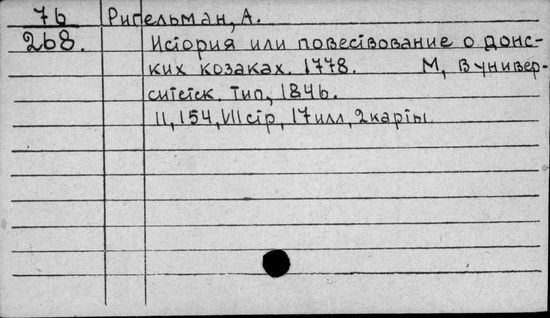 76 Ригельман, А.
268. История или повествование о донс-
ких козаках. 1778. М, В универ-
ситетск. тип, 1846.
II, 154, VII стр, 17 илл, 2 карты.